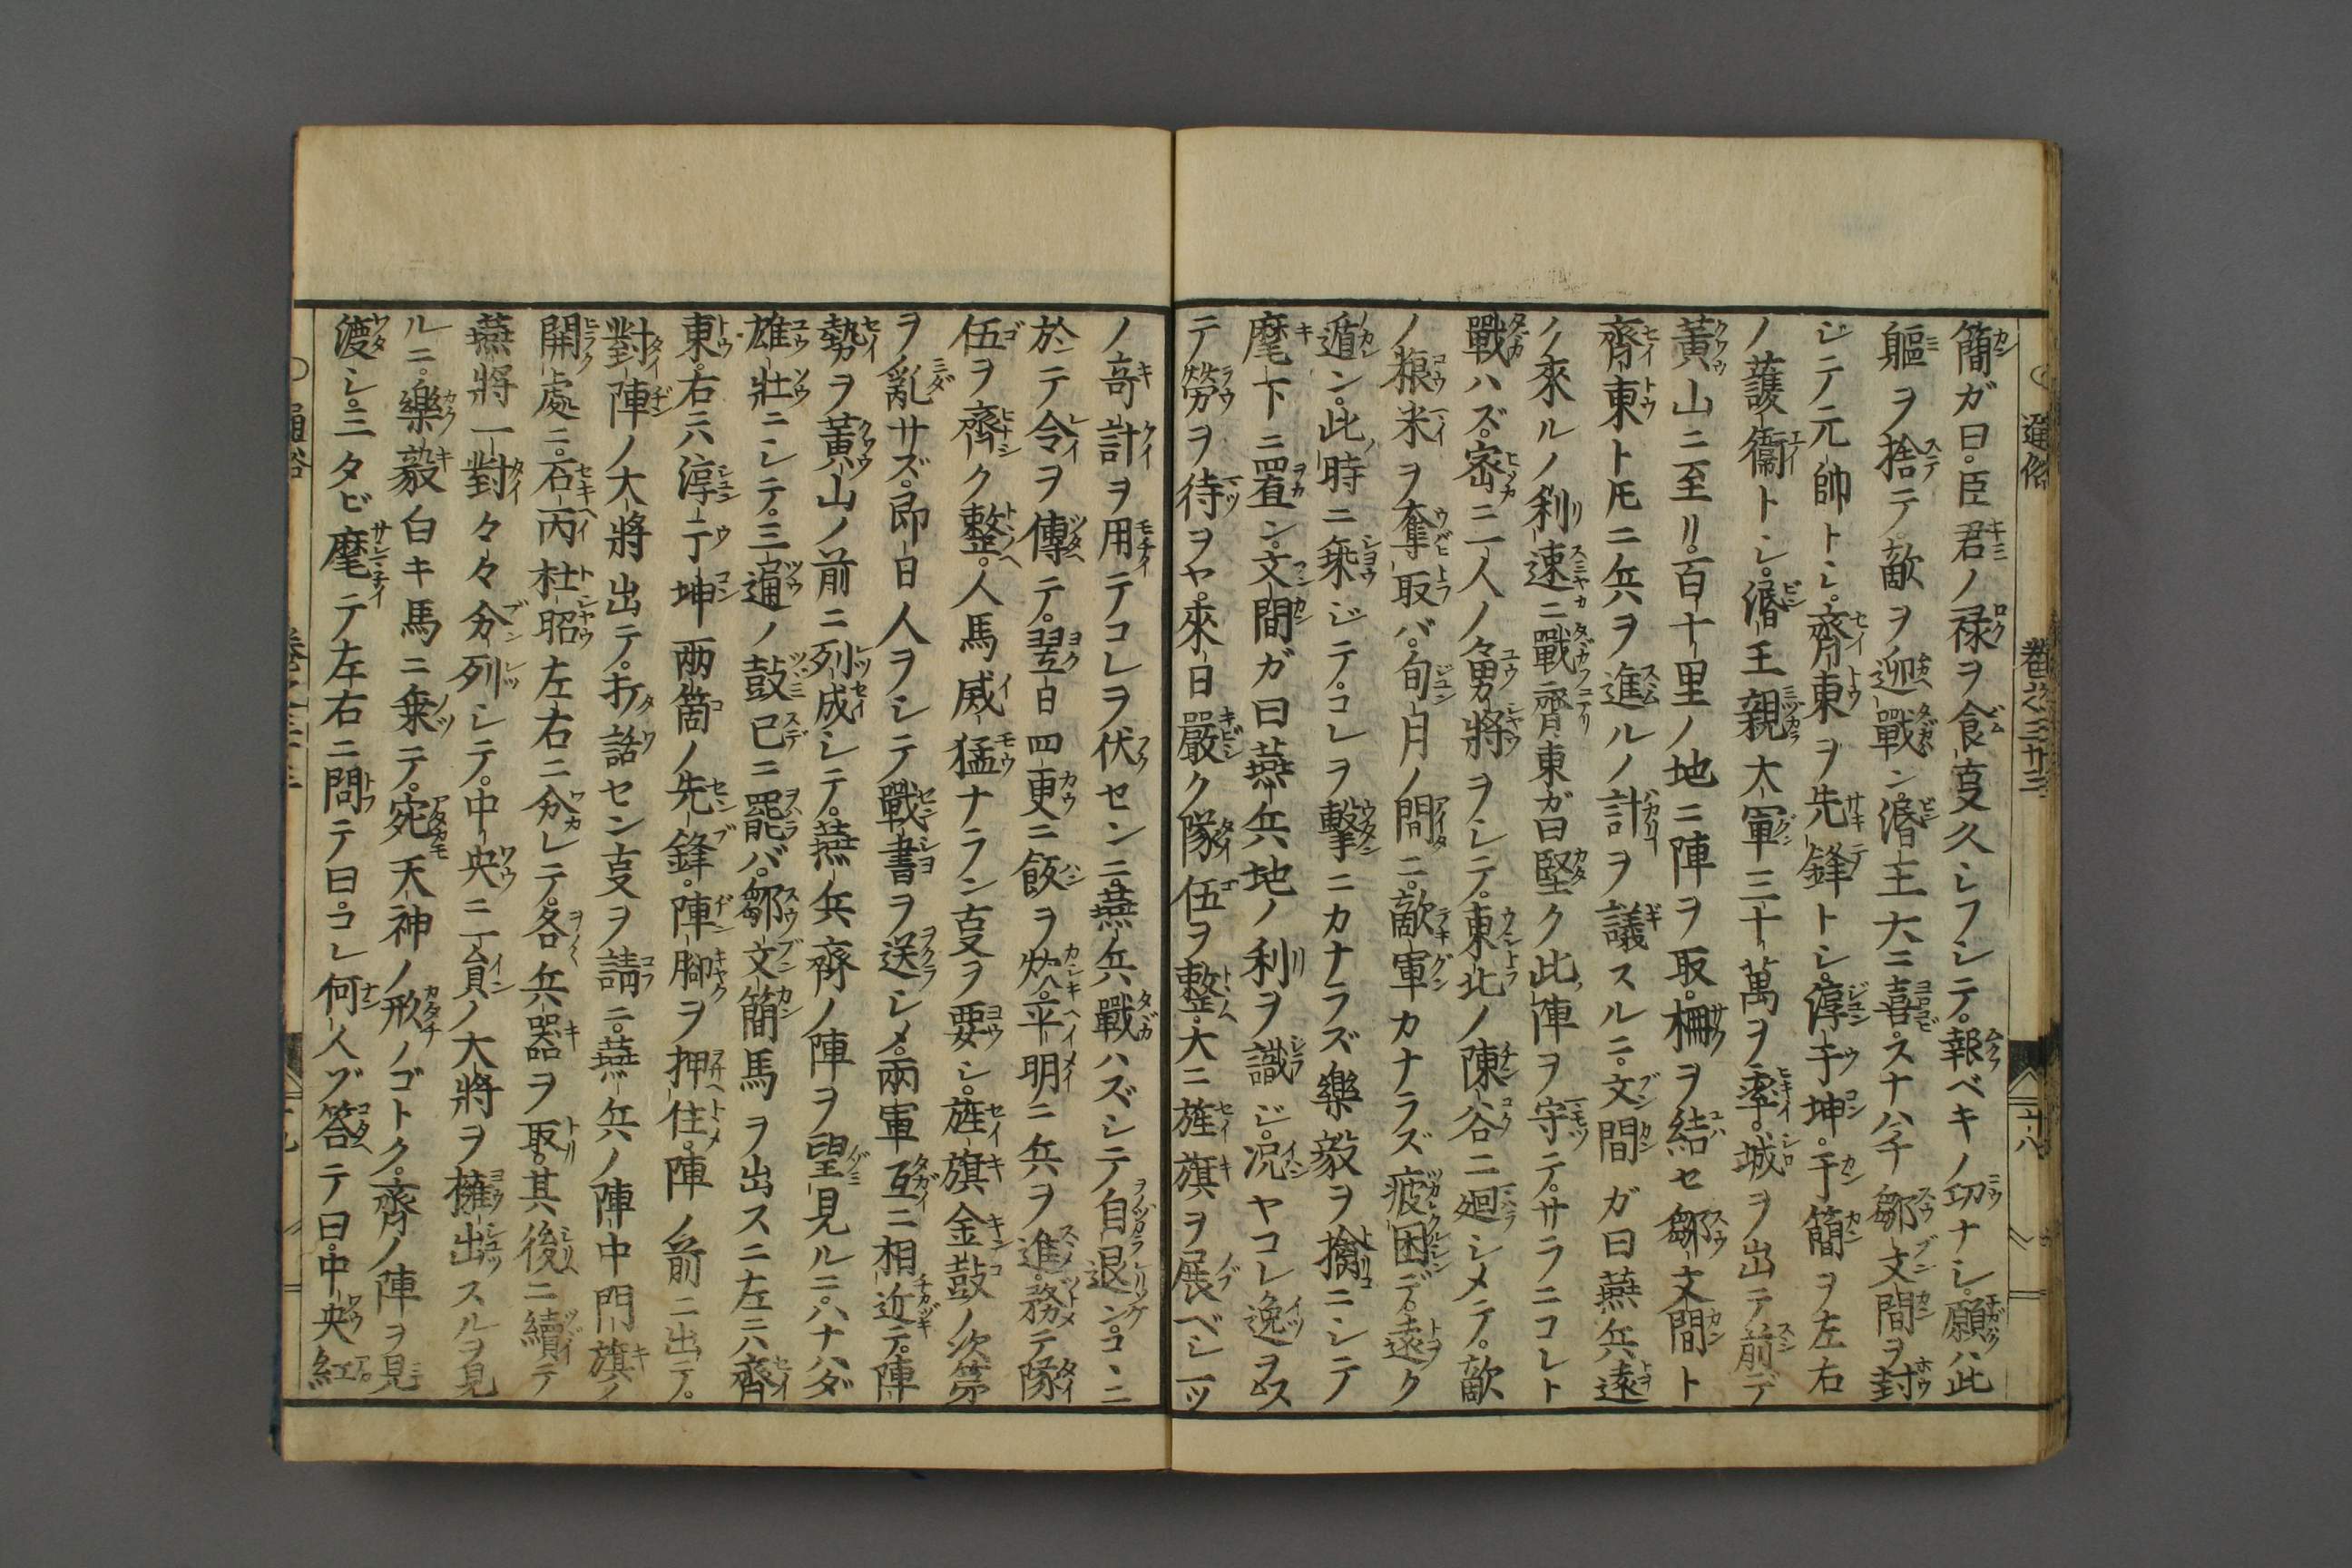 通俗 卷之三 廿三 十八
簡ガ曰。臣君ノ禄ヲ食事久シフシテ。報ベキノ功ナシ。願ハ此
軀ヲ捨テ。敵ヲ迎戰ン。湣王大ニ喜。スナハチ鄒文簡ヲ封
ジテ元帥トシ。齊東ヲ先鋒トシ。淳于坤。于簡ヲ左右
ノ護衞トシ。湣王親大軍三十萬ヲ率。城ヲ出テ前デ
黃山ニ至リ。百十里ノ地ニ陣ヲ取。柵ヲ結セ鄒文簡ト
齊東ト𪜈ニ兵ヲ進ルノ計ヲ議スルニ。文簡ガ曰燕兵遠
ク來ルノ利速ニ戰齊東ガ曰堅ク此陣ヲ守テ。サラニコレト
戰ハズ。密ニ一人ノ勇將ヲシテ。東北ノ陳谷ニ廻シメテ。敵
ノ粮米ヲ奪取バ。旬月ノ間ニ。敵軍カナラズ疲困デ。遠ク
遁ン。此時ニ乘ジテ。コレヲ擊ニカナラズ樂毅ヲ擒ニシテ
麾下ニ置ン。文簡ガ曰燕兵地ノ利ヲ識ジ。況ヤコレ逸ヲス
テ勞ヲ待ヲヤ。來日嚴ク隊伍ヲ整。大ニ旌旗ヲ展ベシ一ツ
ノ奇計ヲ用テコレヲ伏センニ燕兵戰ハズシテ自退ン。コヽニ
於テ令ヲ傳テ。翌日四更ニ飯ヲ炊。平明ニ兵ヲ進。務テ隊
伍ヲ齊ク整。人馬威猛ナラン事ヲ要シ。旌旗金鼓ノ次第
ヲ亂サズ。即日人ヲシテ戰書ヲ送シメ。兩軍互ニ相近テ。陣
勢ヲ黃山ノ前ニ列成シテ。燕兵齊ノ陣ヲ望見ルニ。ハナハダ
雄壯ニシテ。三通ノ鼓已ニ罷バ。鄒文簡馬ヲ出スニ左ニハ齊
東。右ニハ淳于坤兩箇ノ先鋒。陣脚ヲ押住。陣ノ前ニ出テ。
對陣ノ大將出テ。打話セン事ヲ請ニ。燕兵ノ陣中門旗ノ
開處ニ。石丙杜昭左右ニ分レテ。各兵器ヲ取。其後ニ續テ
燕將一對々々分列シテ。中央ニ一員ノ大將ヲ擁出スルヲ見
ルニ。樂毅白キ馬ニ乘テ。宛天神ノ形ノゴトク。齊ノ陣ヲ見
渡シ。三タビ麾テ左右ニ問テ曰。コレ何人ゾ答テ曰。中央紅